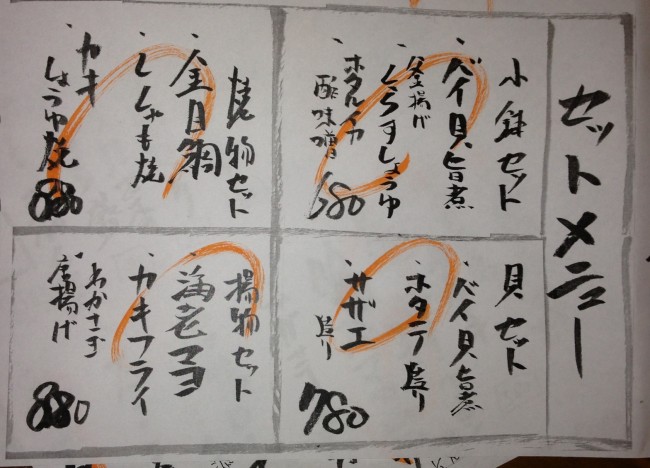 セットメニュー
小鉢セット
、バイ貝旨煮
、釜揚げ
しらすしょうゆ
、ホタルイカ
酢味噌
680
焼物セット
、金目鯛
、ししゃも焼
、カキ
しょうゆ焼
880
貝セット
、バイ貝旨煮
、ホタテ造り
、サザエ造り
780
揚物セット
、海老マヨ
、カキフライ
、わかさぎ
唐揚げ
880